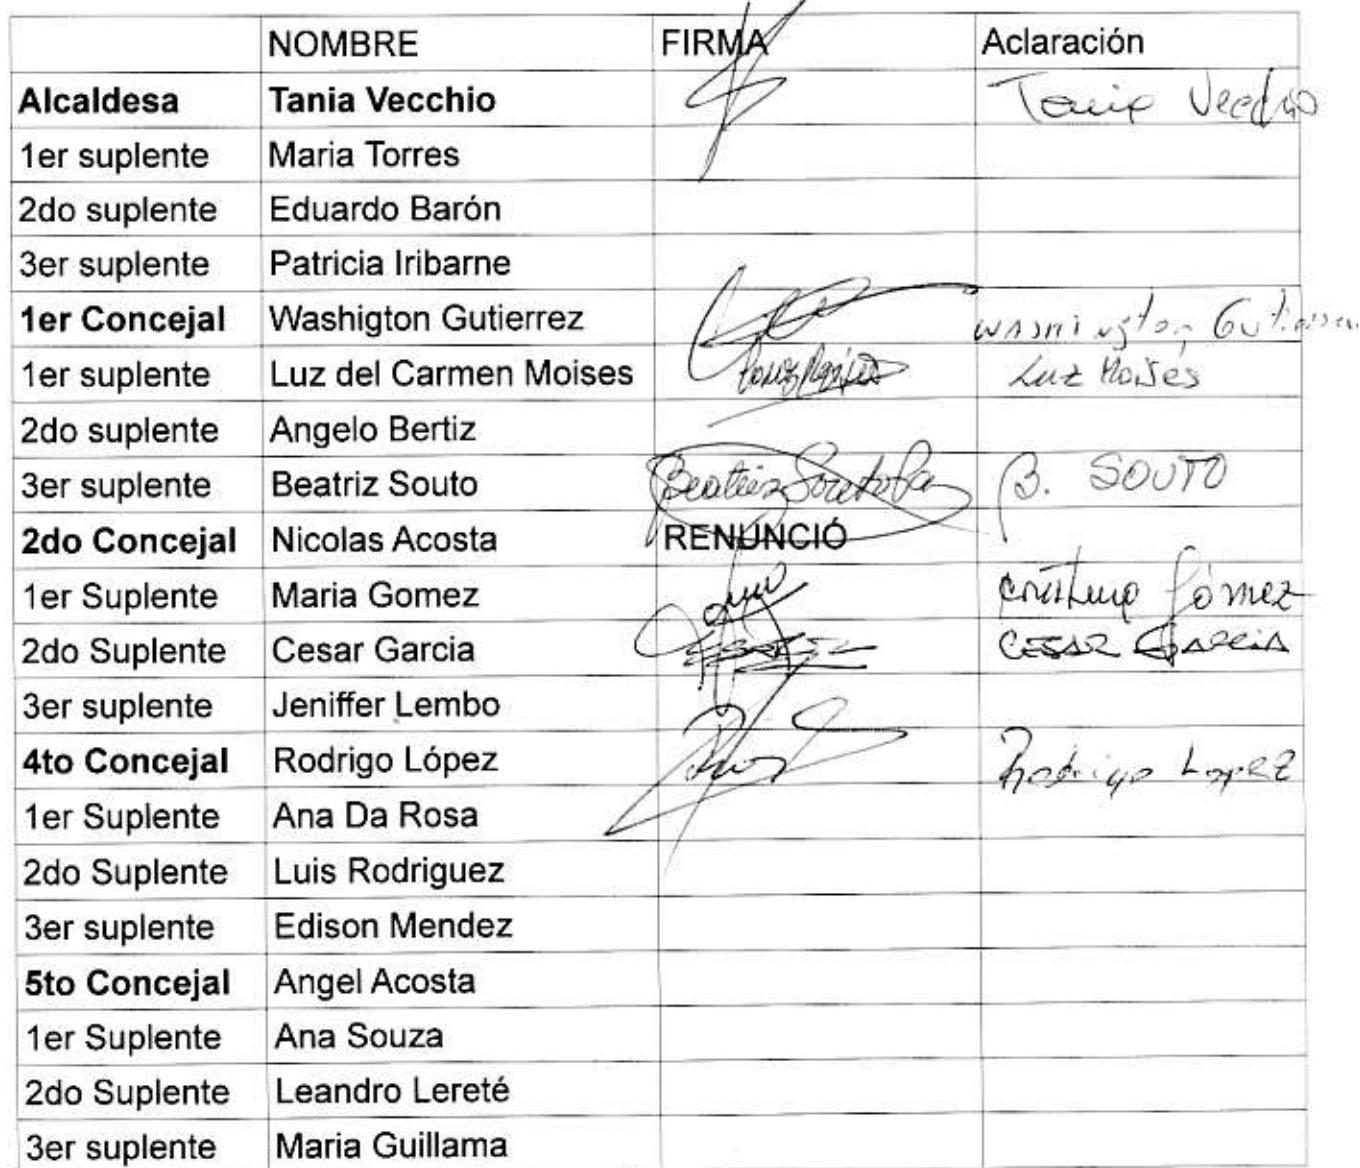 NOMBRE FIRMA Aclaración
Alcaldesa Tania Vecchio Tania Vecchio
1er suplente Maria Torres
2do suplente Eduardo Barón
3er suplente Patricia Iribarne
1er Concejal Washigton Gutierrez Washington Gutierrez
1er suplente Luz del Carmen Moises Luz Moisés
2do suplente Angelo Bertiz
3er suplente Beatriz Souto Beatriz Souto B. SOUTO
2do Concejal Nicolas Acosta RENUNCIÓ
1er Suplente Maria Gomez Cristina Gómez
2do Suplente Cesar Garcia CESAR GARCIA
3er suplente Jeniffer Lembo
4to Concejal Rodrigo López Rodrigo Lopez
1er Suplente Ana Da Rosa
2do Suplente Luis Rodriguez
3er suplente Edison Mendez
5to Concejal Angel Acosta
1er Suplente Ana Souza
2do Suplente Leandro Lereté
3er suplente Maria Guillama